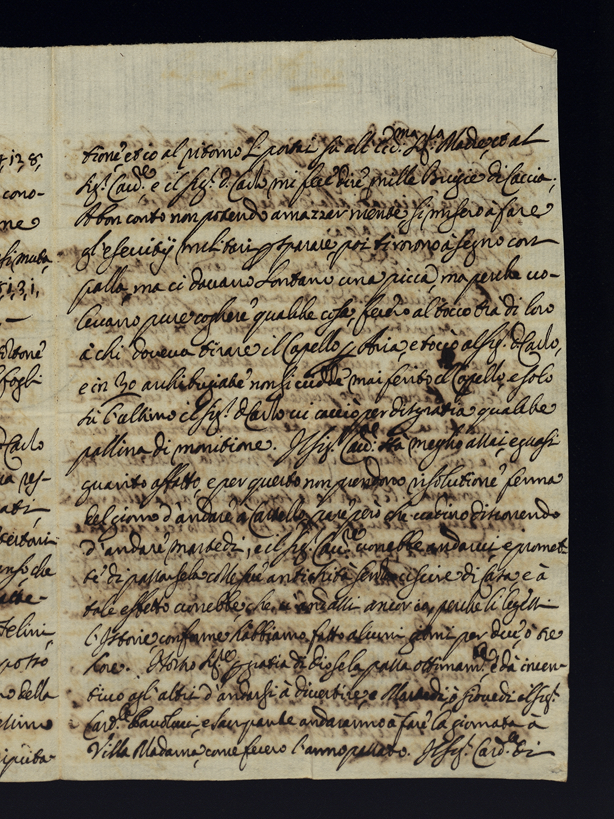 4, 13, 8,
cono-
me
si muta
8, 1, 3, 1,
fogli
d. Carlo
ua res-
anso che
telini
posso
no bella
tione et io al ritorno portai la Madre, et al
Sig.r Card.le e il Sig.r d. Carlo mi fece dire mille bugie di caccia,
A bon conto non potendo amazzar niente si misero à fare
gl'esercitij militari, sparare, poi tirorono à segno con
palla, ma ci davano lontano una picca, ma perche vo-
levano pure cogliere qualche cosa fecero al tocco tra di loro
à chi doveva tirare il Capello per aria, e toccò al Sig.r d. Carlo,
e in 30 archibugiate non si vidde mai ferito il Capello, e solo
sù l'ultimo il Sig.r d. Carlo ui cacciò per disgratia qualche
pallina di monitione. Il Sig.r Card.le stà meglio assai, e quasi
guarito affatto, e per questo non prendono risolutione ferma
del giorno d'andare à Castello, pare però che vadino discorrendo
d'andare Martedi, e il Sig.r Card.le vorrebbe andarui e promet-
te di passarsela colle sue antichità senza uscire di casa, e à
tale effetto vorrebbe, che ui andassi ancor io, perche li leggessi
l'Istorie, conforme habbiamo fatto alcuni giorni per due ò tre
hore. per gratia di Dio se la passa ottimam.te, e dà incen-
tivo agli altri d'andarsi à divertire, e Martedi, ò Giovedi il Sig.r
Card.le Pauolucci, e Sacripante andaranno à fare la giornata à
Villa Madama, come fecero l'anno passato. Il Sig.r Card.le di